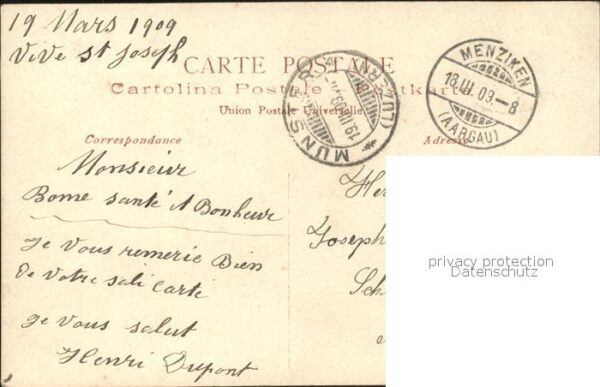 19 Mars 1909
Vive St Joseph
CARTE POSTALE
Cartolina Postale Postkarte
Union Postale Universelle
MÜNSTER (LUZERN)
19.III.09
MENZIKEN
18.III.09.-8
(AARGAU)
Correspondance
Adresse
Monsieur
Bonne santé et Bonheur
Je vous remerie Bien
de votre joli carte
Je vous salut
Henri Dupont
Her
Joseph
Sch
privacy protection
Datenschutz